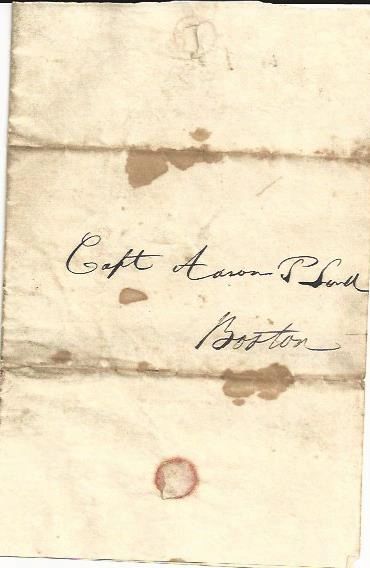 Capt Aaron P Lord
Boston